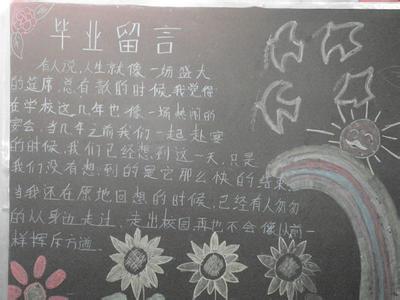 毕业留言
有人说,人生就像一场盛大
的筵席,总有散的时候,我觉得
在学校这几年也像一场热闹的
宴会,当几年之前我们一起赴宴
的时候,我们已经想到这一天,只是
我们没有想到的是它那么快的结束,
当我还在原地回想的时候,已经有人匆匆
的从身边走过,走出校园,再也不会像从前一
样挥斥方遒